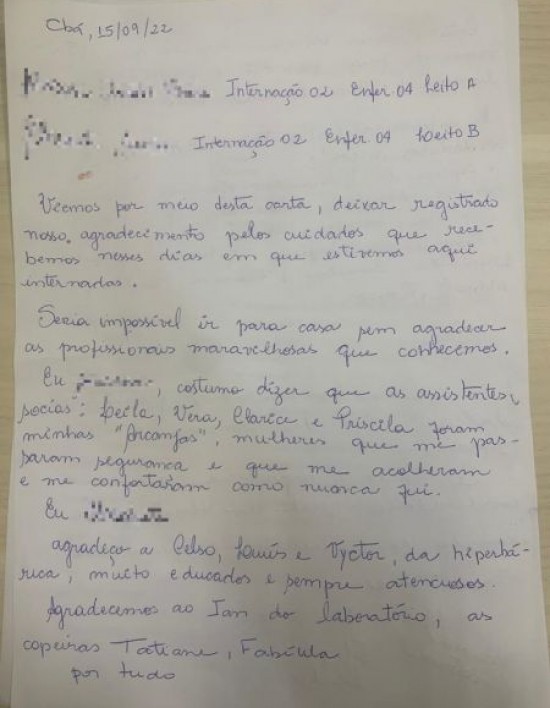 Cbá, 15/09/22
Internação 02 Enfer. 04 Leito A
Internação 02 Enfer. 04 Leito B
Viemos por meio desta carta, deixar registrado
nosso agradecimento pelos cuidados que rece-
bemos nesses dias em que estivemos aqui
internadas.
Seria impossível ir para casa sem agradecer
as profissionais maravilhosas que conhecemos.
Eu , costumo dizer que as assistentes
socias: Leila, Vera, Clarice e Priscila foram
minhas "Arcanjas", mulheres que me pas-
saram seguranca e que me acolheram
e me confortaram como nunca fui.
Eu
agradeço a Celso, Louis e Vyctor, da hiperbá-
rica, muito educados e sempre atenciosos.
Agradecemos ao Ian do laboratório, as
copeiras Tatiane, Fabíula
por tudo